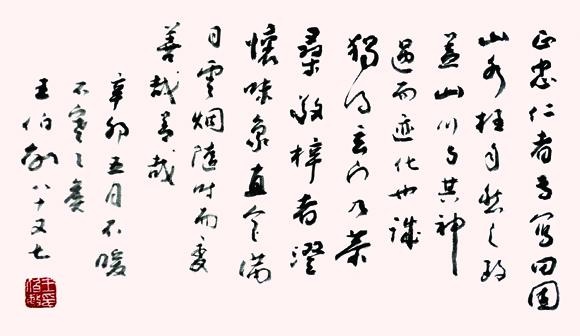 正忠仁者专写田园
山水极自然之致
盖山川与其神
遇而迹化也诚
独得玄门乃恭
桑敬梓者澄
怀味象直令满
目云烟随时而变
善哉善哉
辛卯五月不暖
不寒之
王伯敏八十又七